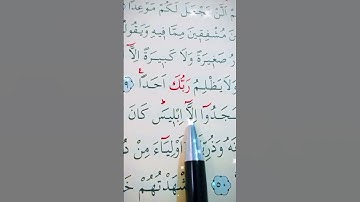 اَلَّنْ نَجْعَلَ لَكُمْ مَوْعِدًا
مُشْفِقٖينَ مِمَّا فٖيهِ وَيَقُولُونَ
صَغٖيرَةً وَلَا كَبٖيرَةً اِلَّٓا
وَلَا يَظْلِمُ رَبُّكَ اَحَدًا ﴿٤٩﴾
فَسَجَدُٓوا اِلَّٓا اِبْلٖيسَۜ كَانَ
وَذُرِّيَّتَهُٓ اَوْلِيَٓاءَ مِنْ
﴿٥٠﴾